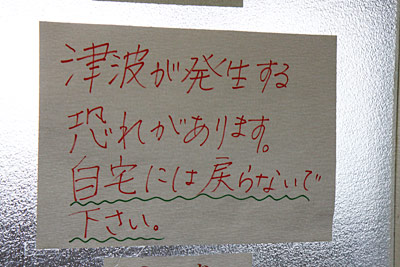 津波が発生する
恐れがあります。
自宅には戻らないで
下さい。